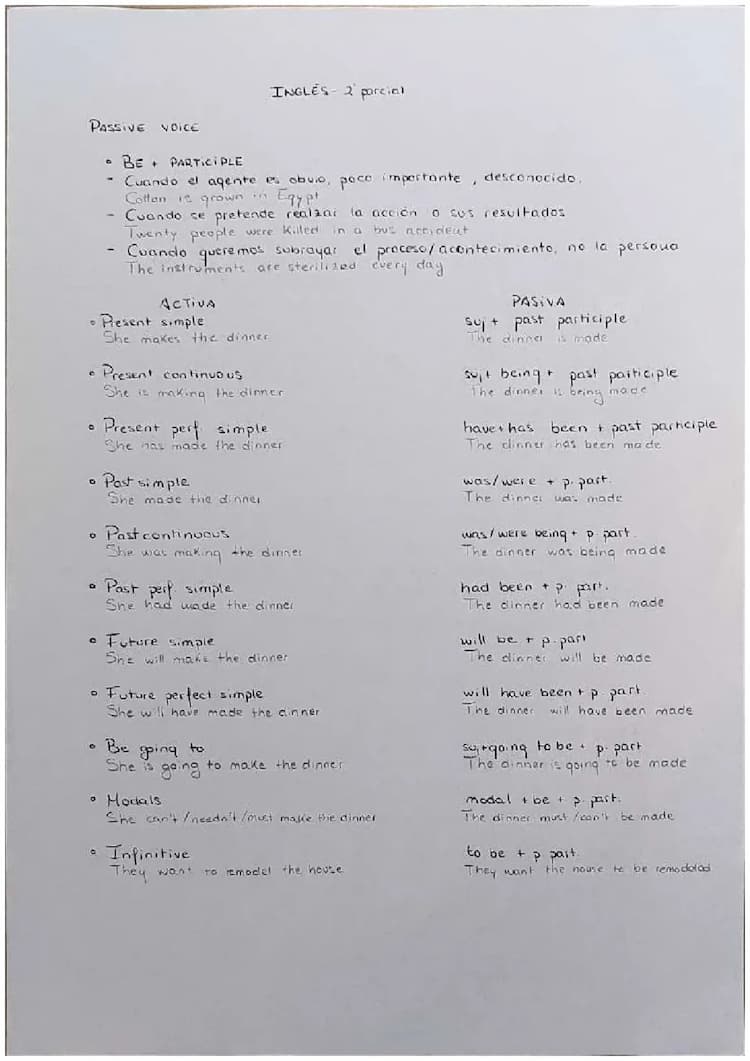 INGLÉS - 2º parcial
PASSIVE VOICE
• BE + PARTICIPLE
- Cuando el agente es obvio, poco importante, desconocido.
Cotton is grown in Egypt
- Cuando se pretende realzar la acción o sus resultados
Twenty people were killed in a bus accident
- Cuando queremos subrayar el proceso/acontecimiento, no la persona
The instruments are sterilized every day
ACTIVA PASIVA
• Present simple suj + past participle
She makes the dinner The dinner is made
• Present continuous suj + being + past participle
She is making the dinner The dinner is being made
• Present perf. simple have+has been + past participle
She has made the dinner The dinner has been made
• Past simple was/were + p. part.
She made the dinner The dinner was made
• Past continuous was/were being + p. part.
She was making the dinner The dinner was being made
• Past perf simple had been + p. part.
She had made the dinner The dinner had been made
• Future simple will be + p. part
She will make the dinner The dinner will be made
• Future perfect simple will have been + p. part.
She will have made the dinner The dinner will have been made
• Be going to suj+going to be + p. part
She is going to make the dinner The dinner is going to be made
• Modals modal + be + p. part.
She can't/needn't/must make the dinner The dinner must/can't be made
• Infinitive to be + p part.
They want to remodel the house They want the house to be remodeled